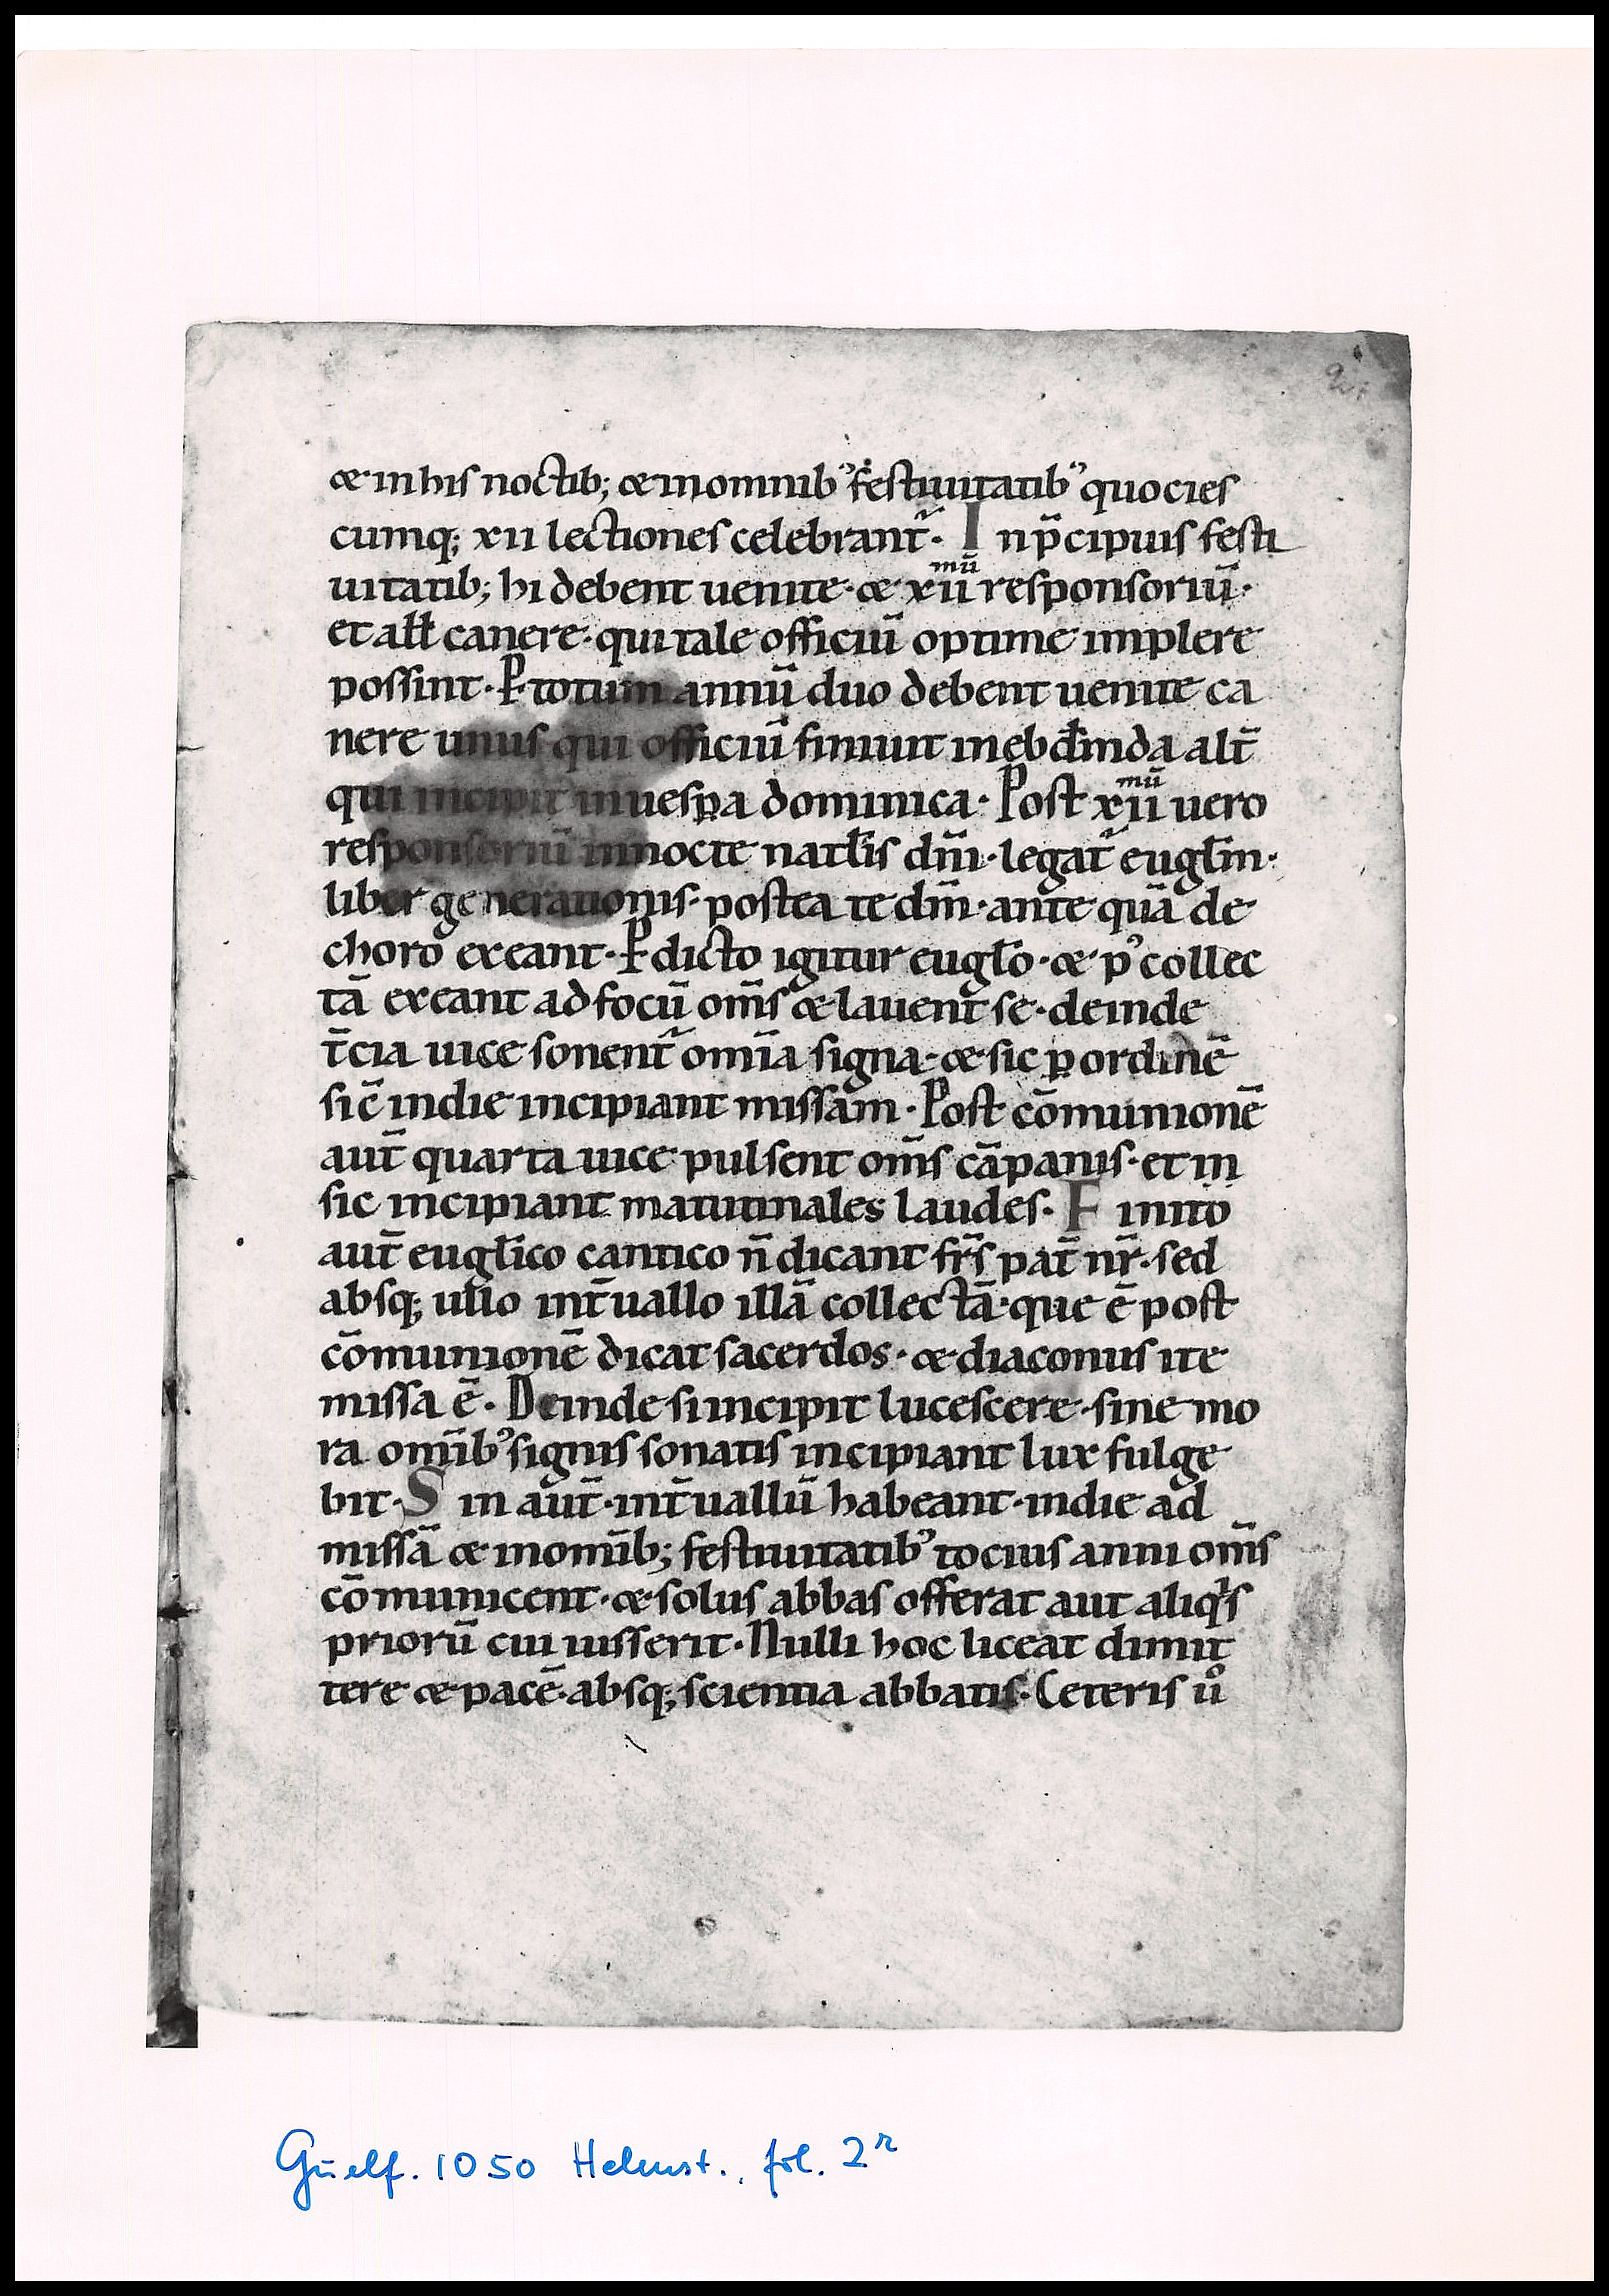 2.
& in his noctib; & in omnib᾽ festiuitatib᾽ quocies
cumq; xii lectiones celebrant᷑. In p̄cipuis festi
uitatib; hi debent uenite. & xii mū responsoriū.
et all̄ canere. qui tale officiū optime implere
possint. P̄ totum annū duo debent uenite ca
nere unus qui officiū finiuit in ebd̄mda alt̄
qui incipit in uesꝑa dominica. Post xii mū uero
responsoriū in nocte natl̄is dn̄i. legat᷑ eugl̄m.
liber generationis. postea te dm̄. ante quā de
choro exeant. P̄dicto igitur eugl̄o. & p᾽ collec
tā exeant ad focū om̄s & lauent se. deinde
t̄cia uice sonent᷑ om̄ia signa. & sic ꝑ ordinē
sic̄ in die incipiant missam. Post cōmunionē
aut̄ quarta uice pulsent om̄s cāpanis. et ị̣ṇ
sic incipiant matutinales laudes. Finito
aut̄ eugl̄ico cantico n̄ dicant fr̄s pat̄ nr̄. sed
absq; ullo int̄uallo illā collectā. que ē post
cōmunionē dicat sacerdos. & diaconus ite
missa ē. Deinde si incipit lucescere. sine mo
ra om̄ib᾽ signis sonatis incipiant lux fulge
bit. Sin aut̄. int̄uallū habeant. in die ad
missā & in om̄ib; festiuitatib᾽ tocius anni om̄s
cōmunicent. & solus abbas offerat aut aliqͥs
priorū cui iusserit. Nulli hoc liceat dimit
tere & pacē. absq; scientia abbatis. Ceteris uͦ
Guelf. 1050 Helmst., fol. 2r